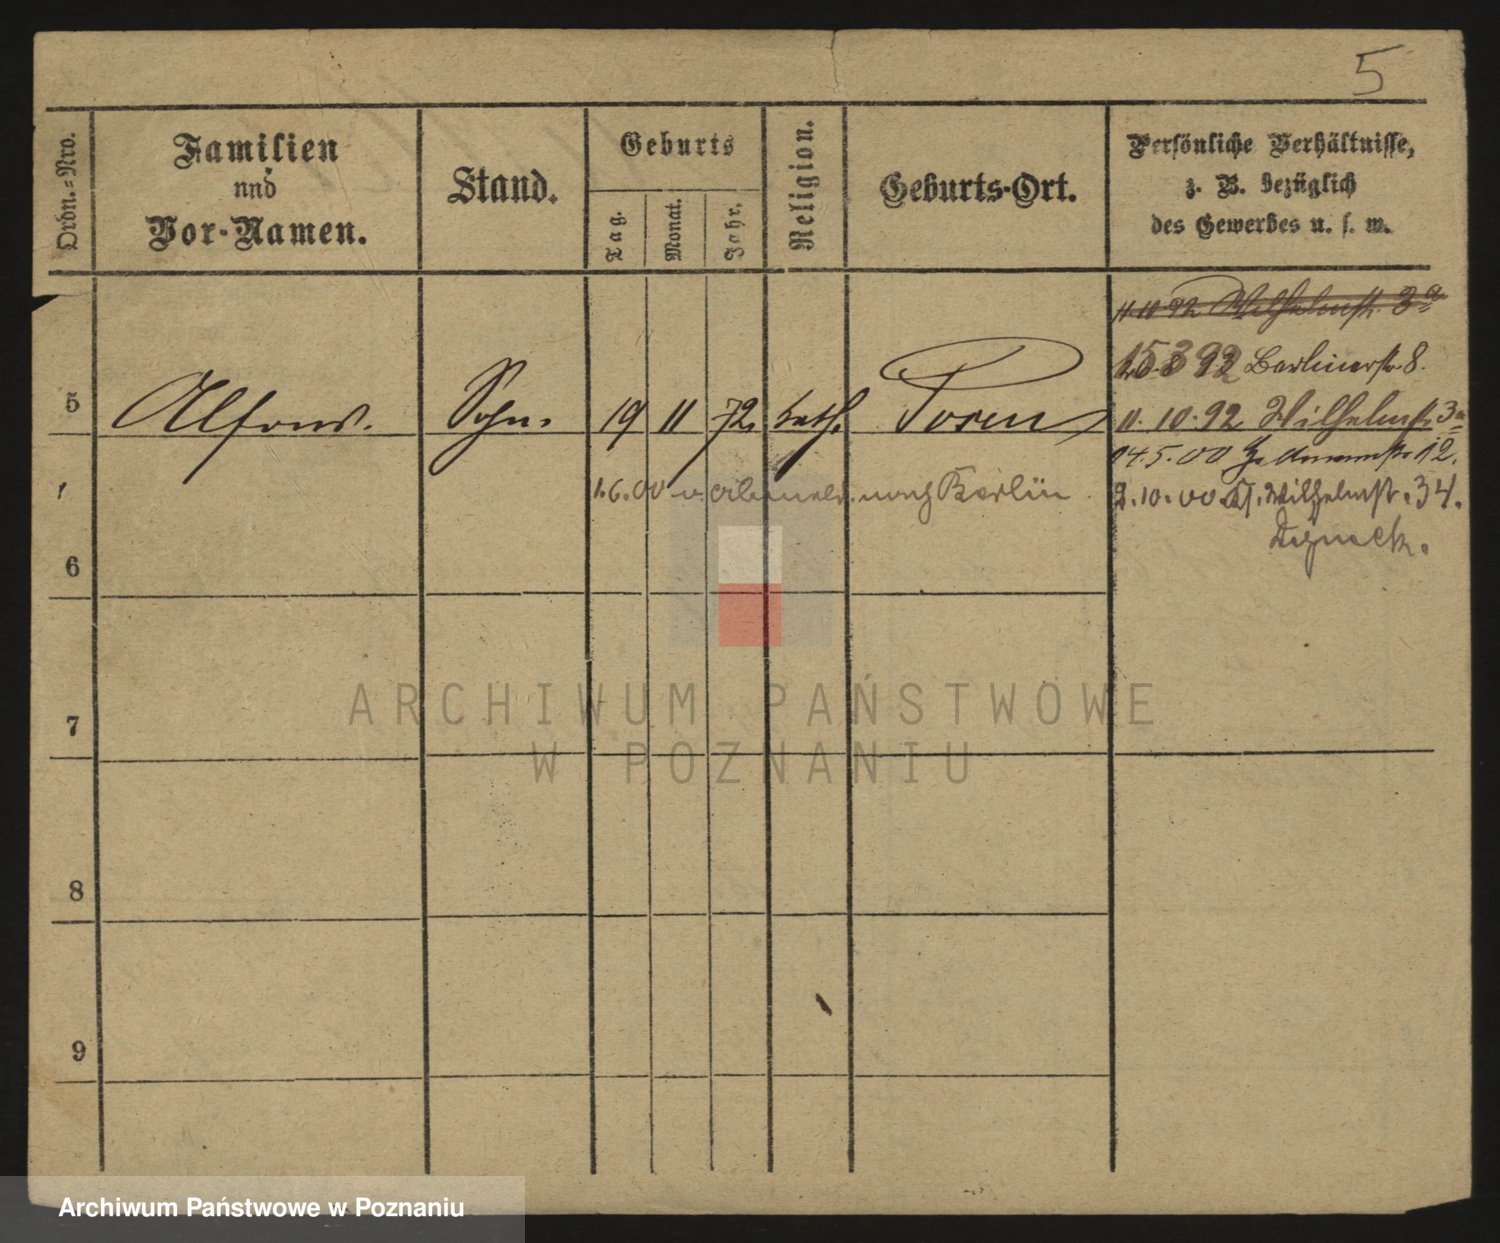 5
Ordn.=Nro.
Familien
und
Vor-Namen.
Stand.
Geburts
Tag.
Monat.
Jahr.
Religion.
Geburts-Ort.
Persönliche Verhältnisse,
z. B. bezüglich
des Gewerbes u. s. w.
11.10.92 Wilhelmstr. 3a
15 3 92 Berlinerstr. 8.
5 Alfons. Sohn. 19 11 72. kath. Posen 11.10.92 Wilhelmstr. 3a
14.5.00 12.
1.6.00 nach Berlin
2.10.00 Wilhelmstr. 34.
6
7
8
9
ARCHIWUM PAŃSTWOWE
W POZNANIU
Archiwum Państwowe w Poznaniu